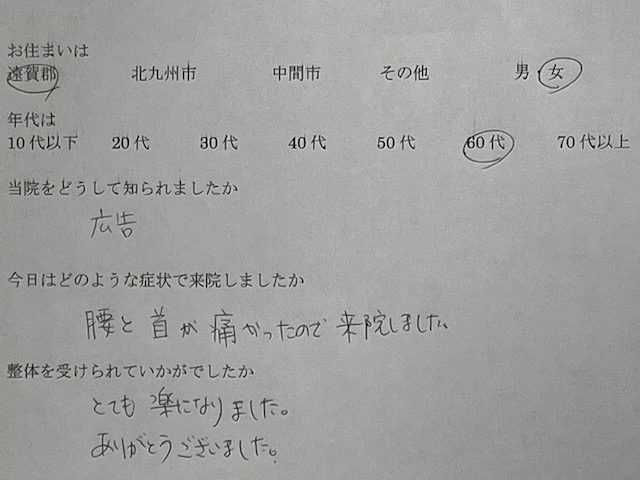 お住まいは
遠賀郡 北九州市 中間市 その他 男・女
年代は
10代以下 20代 30代 40代 50代 60代 70代以上
当院をどうして知られましたか
広告
今日はどのような症状で来院しましたか
腰と首が痛かったので来院しました。
整体を受けられていかがでしたか
とても楽になりました。
ありがとうございました。